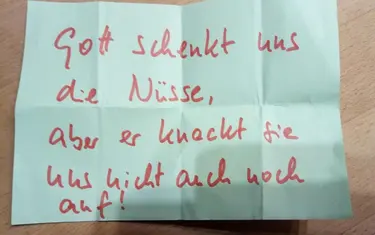 Gott schenkt uns
die Nüsse,
aber er knackt sie
uns nicht auch noch
auf!